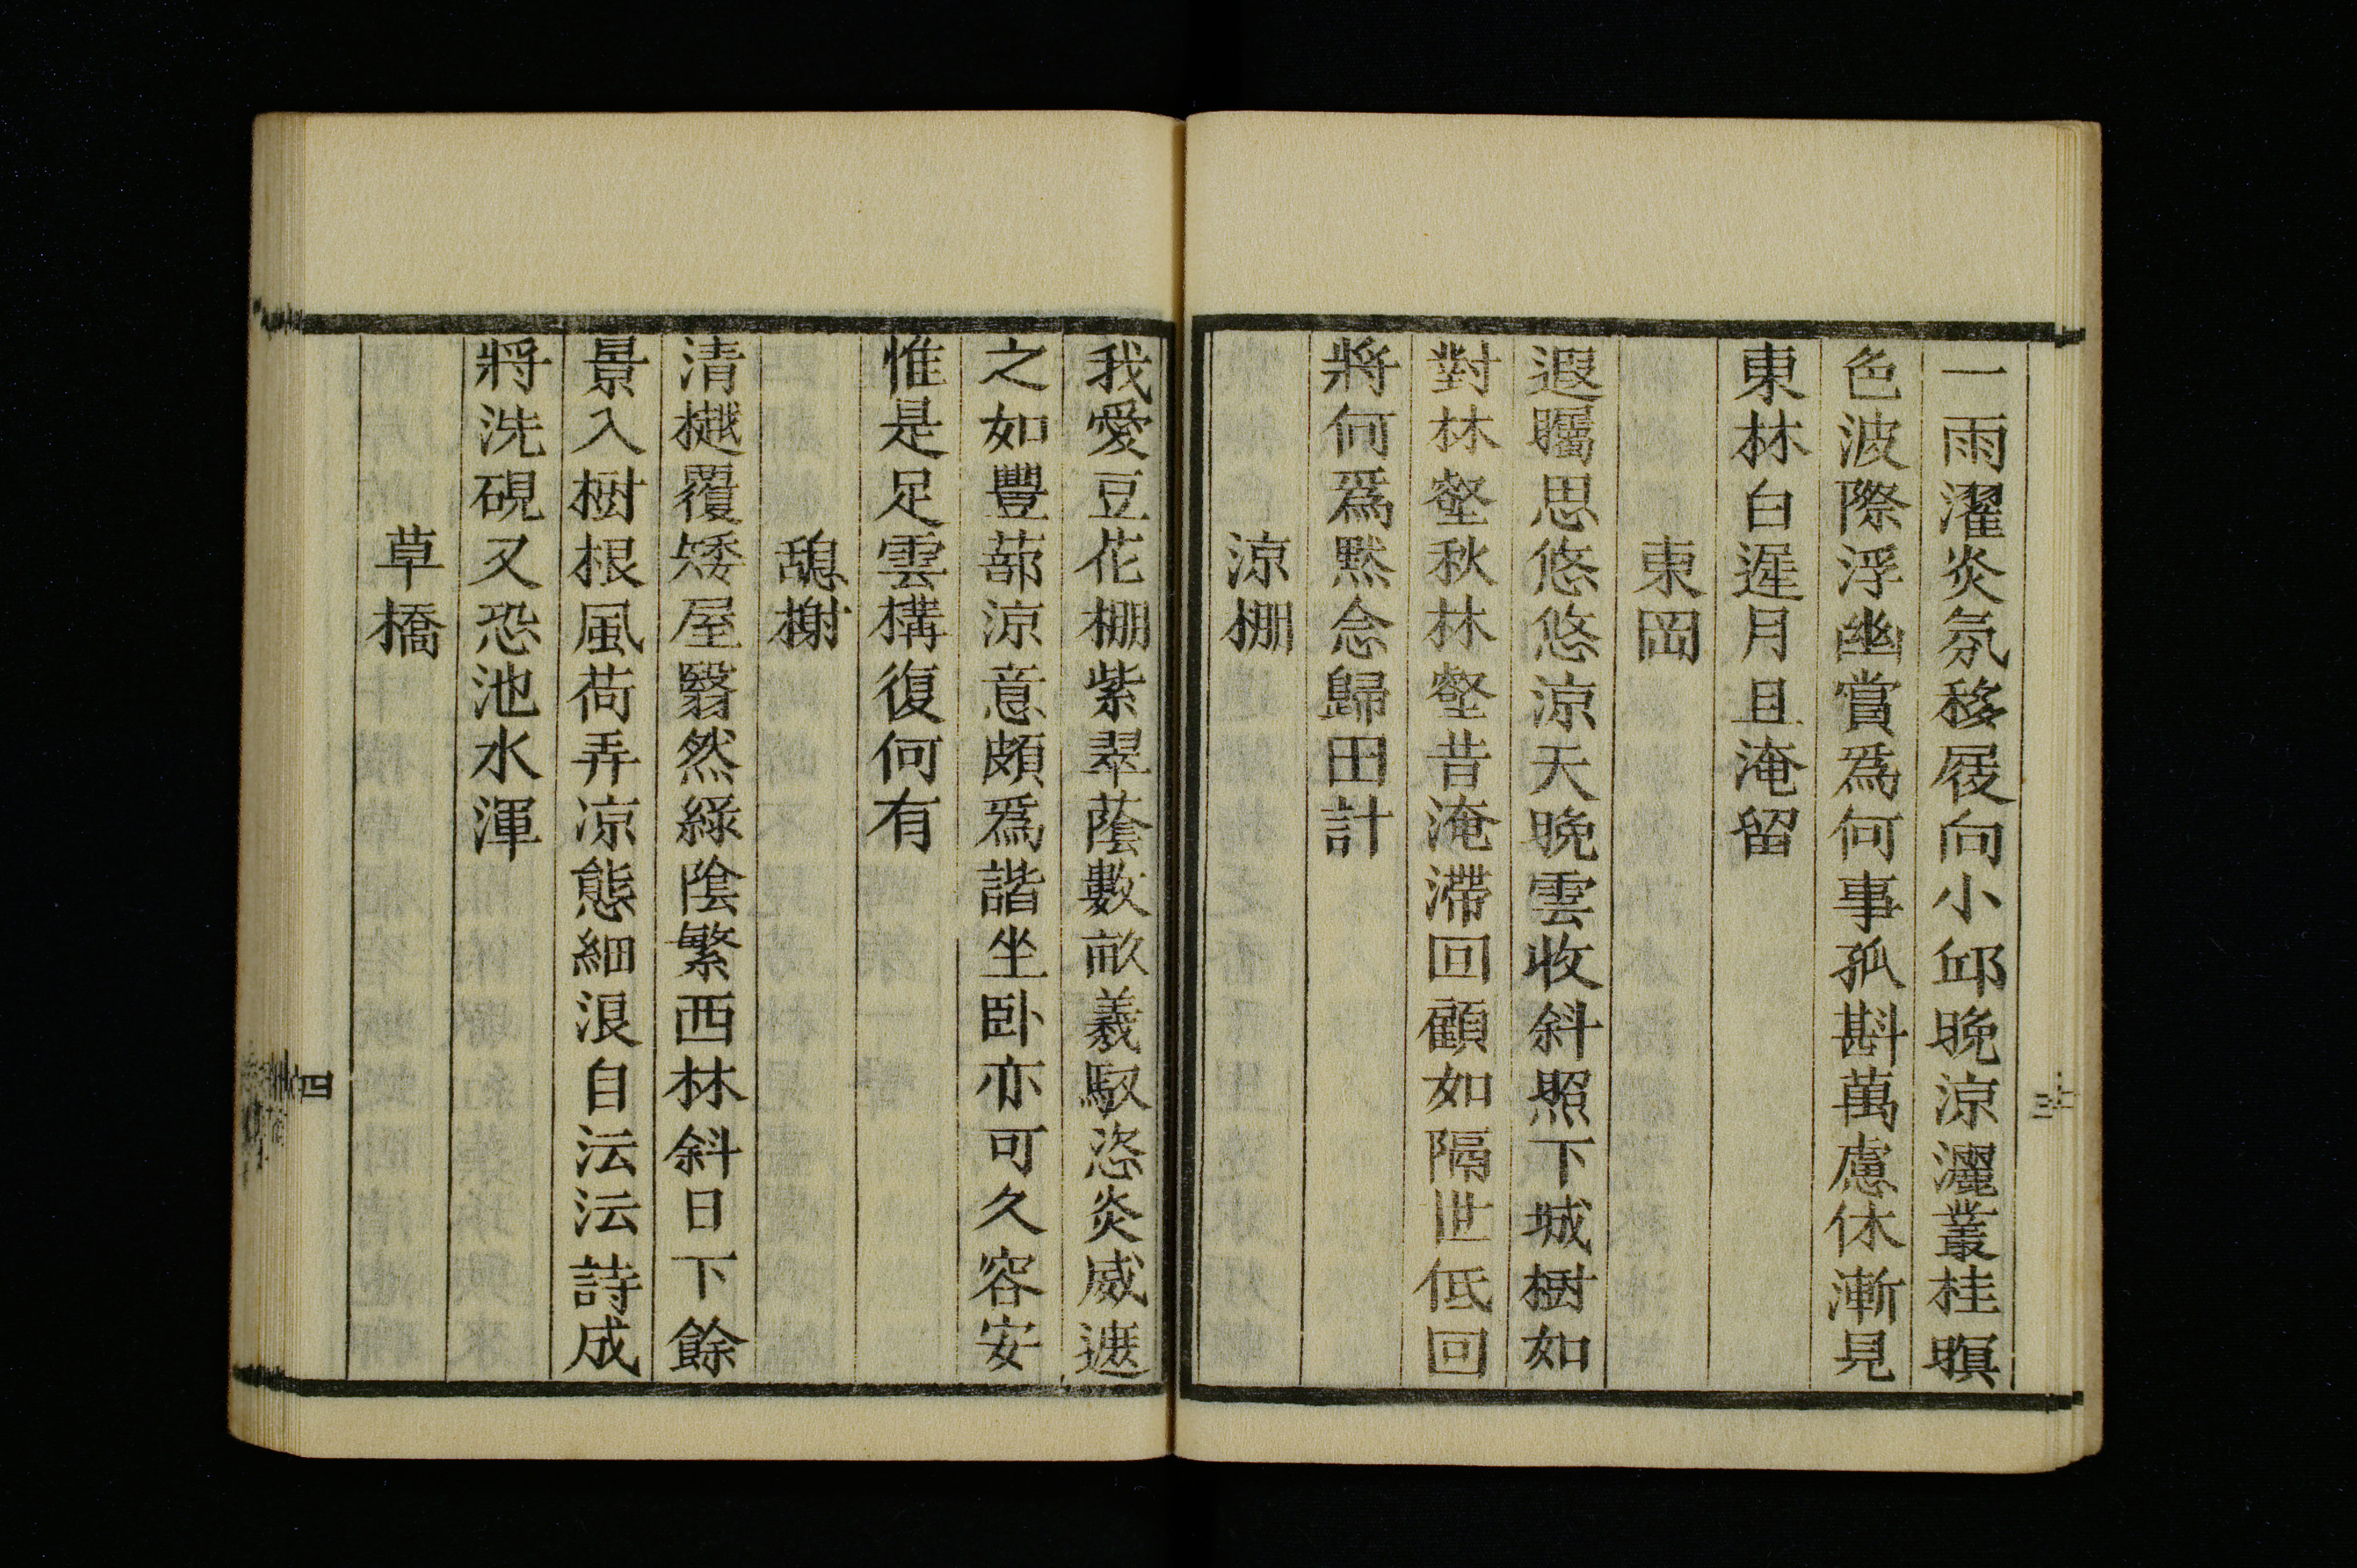 一雨濯炎氛移屐向小邱晩涼灑叢桂暝
色波際浮幽賞爲何事孤斟萬慮休漸見
東林白遲月且淹留
東岡
遐矚思悠悠涼天晩雲收斜照下城樹如
對林壑秋林壑昔淹滯回顧如隔世低回
將何爲黙念歸田計
涼棚
我愛豆花棚紫翠蔭數畝羲馭恣炎威遮
之如豐蔀涼意頗爲諧坐卧亦可久容安
惟是足雲構復何有
憩榭
清樾覆矮屋翳然綠陰繁西林斜日下餘
景入樹根風荷弄凉態細浪自沄沄詩成
將洗硯又恐池水渾
草橋
四